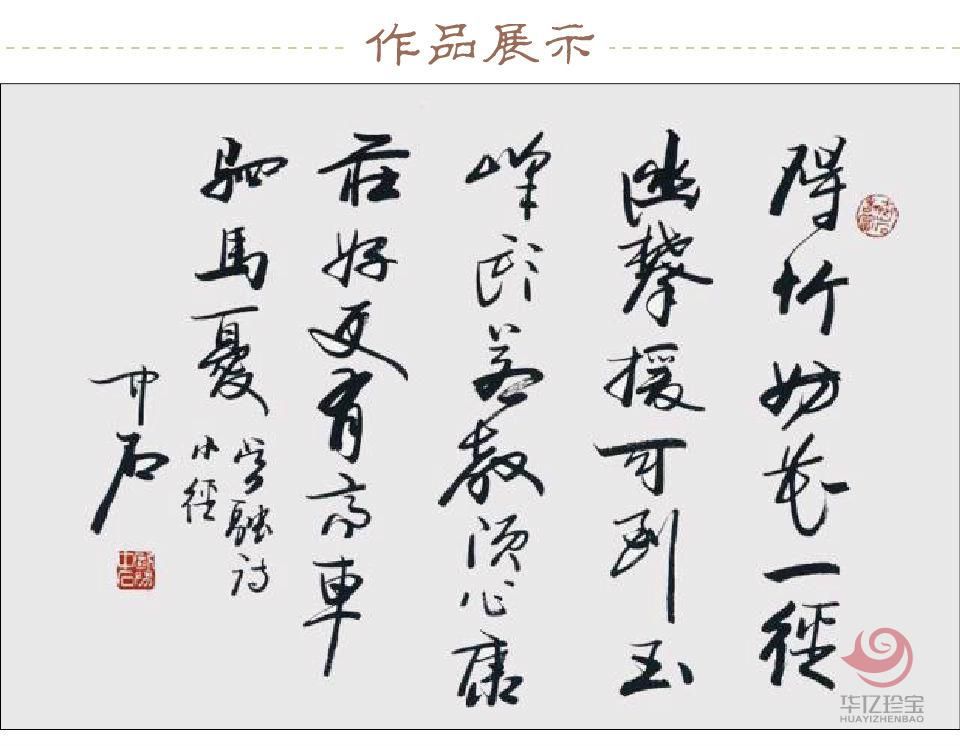 作品展示
碍竹妨花一徑
幽攀援可到玉
峰头若教须作康
莊好更有高車
駟馬憂
吴融诗
小徑
中石
华亿珍宝
HUAYIZHENBAO